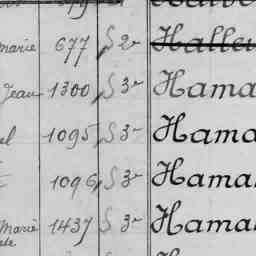 marie 677 S 2e Halleu
Jean 1300 S 3e Hama
el 1095 S 3e Hama
1096 S 3e Hama
Marie 1437 S 3e Hama